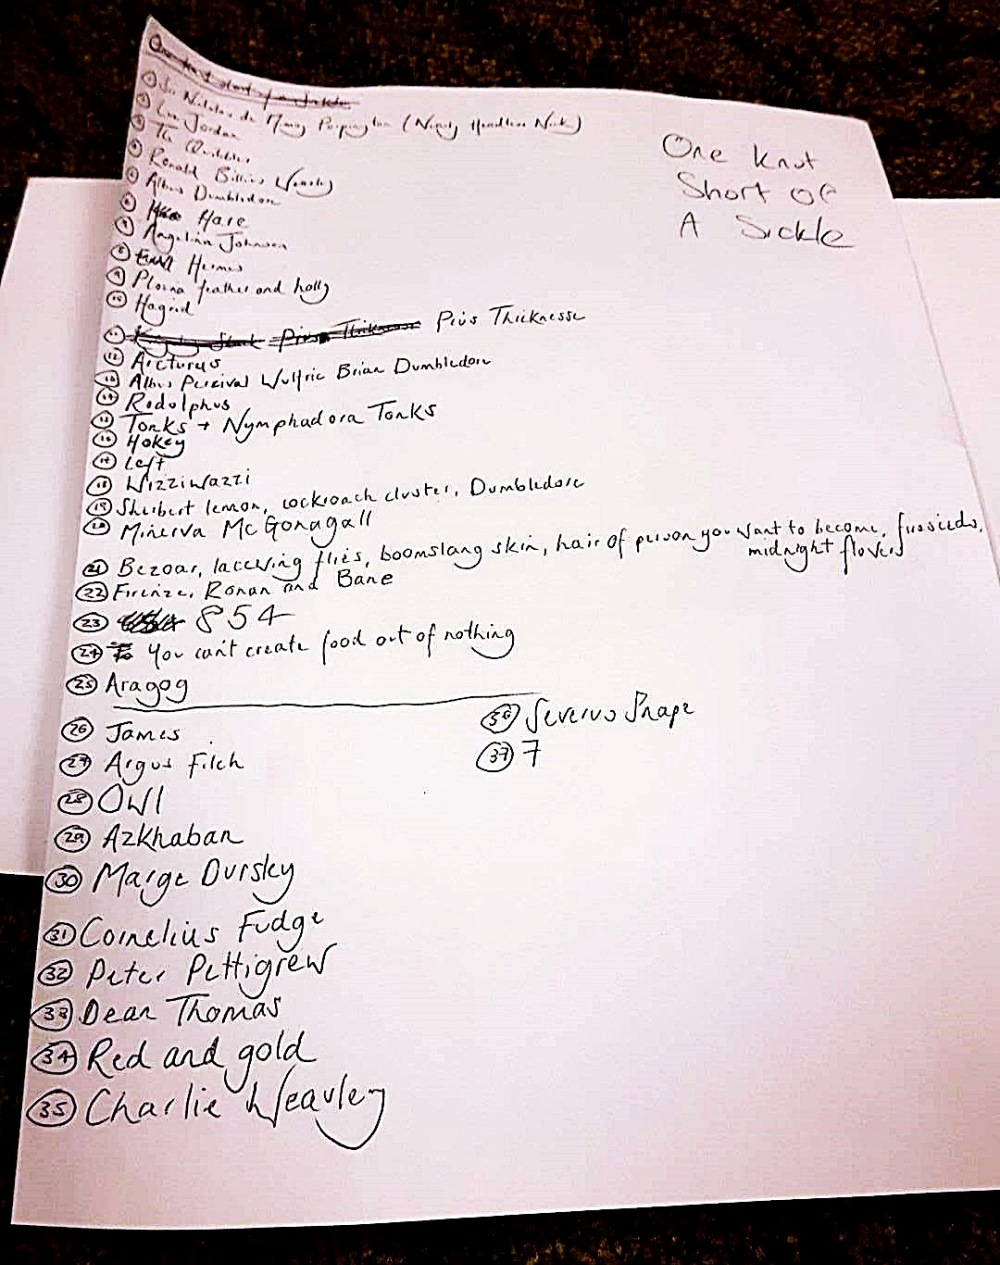 One knut short of a sickle
One Knut
Short Of
A Sickle
① Sir Nicholas de Mimsy Porpington (Nearly Headless Nick)
② Lee Jordan
③ The Quibbler
④ Ronald Billius Weasley
⑤ Albus Dumbledore
⑥ Hare
⑦ Angelina Johnson
⑧ Hermes
⑨ Phoenix feather and holly
⑩ Hagrid
⑪ Pius Thicknesse Pius Thicknesse
⑫ Arcturus
⑬ Albus Percival Wulfric Brian Dumbledore
⑭ Rodolphus
⑮ Tonks + Nymphadora Tonks
⑯ Hokey
⑰ Left
⑱ Wizziwazzi
⑲ Sherbert lemon, cockroach cluster, Dumbledore
⑳ Minerva McGonagall
㉑ Bezoar, lacewing flies, boomslang skin, hair of person you want to become,
midnight flowers
㉒ Firenze, Ronan and Bane
㉓ 854
㉔ You can't create food out of nothing
㉕ Aragog
㉖ James
㉗ Argus Filch
㉘ Owl
㉙ Azkhaban
㉚ Marge Dursley
㉛ Cornelius Fudge
㉜ Peter Pettigrew
㉝ Dean Thomas
㉞ Red and gold
㉟ Charlie Weasley
㊱ Severus Snape
㊲ 7